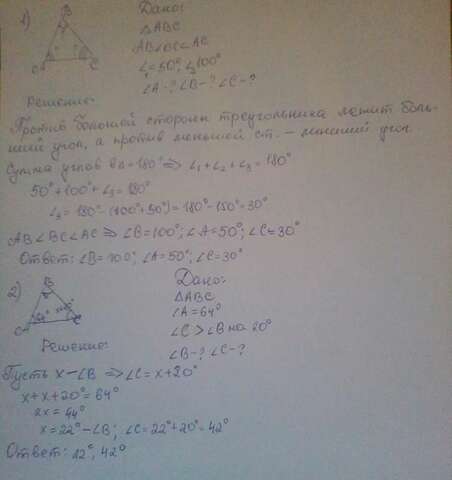 1)
B
C
Дано:
△ABC
AB<BC<AC
∠1=50°; ∠2=100°
∠A-? ∠B-? ∠C-?
Решение:
Против большой стороны треугольника лежит боль-
ший угол, а против меньшей ст. – меньший угол.
Сумма углов в △=180° ⇒ ∠1+∠2+∠3=180°
50°+100°+∠3=180°
∠3=180°-(100°+50°)=180°-150°=30°
AB<BC<AC ⇒ ∠B=100°; ∠A=50°; ∠C=30°
Ответ: ∠B=100°; ∠A=50°; ∠C=30°
2)
B
C
Дано:
△ABC
∠A=64°
∠C>∠B на 20°
∠B-? ∠C-?
Решение:
Пусть x-∠B ⇒ ∠C=x+20°
x+x+20°=64°
2x=44°
x=22°-∠B; ∠C=22°+20°=42°
Ответ: 22°, 42°